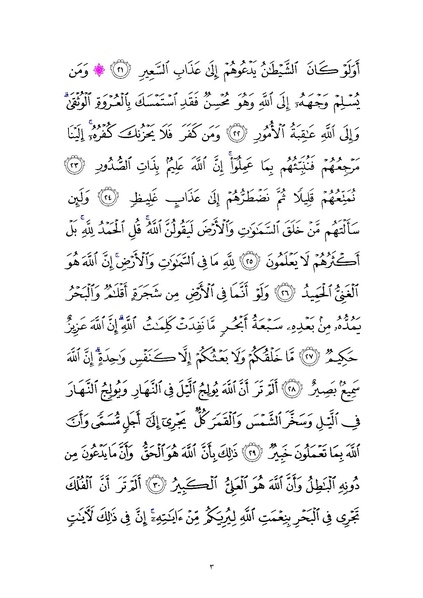 أَوَلَوْ كَانَ ٱلشَّيْطَٰنُ يَدْعُوهُمْ إِلَىٰ عَذَابِ ٱلسَّعِيرِ ٢١ ۞ وَمَن
يُسْلِمْ وَجْهَهُۥٓ إِلَى ٱللَّهِ وَهُوَ مُحْسِنٌ فَقَدِ ٱسْتَمْسَكَ بِٱلْعُرْوَةِ ٱلْوُثْقَىٰ ۗ
وَإِلَى ٱللَّهِ عَٰقِبَةُ ٱلْأُمُورِ ٢٢ وَمَن كَفَرَ فَلَا يَحْزُنكَ كُفْرُهُۥٓ ۚ إِلَيْنَا
مَرْجِعُهُمْ فَنُنَبِّئُهُم بِمَا عَمِلُوٓا۟ ۚ إِنَّ ٱللَّهَ عَلِيمٌۢ بِذَاتِ ٱلصُّدُورِ ٢٣
نُمَتِّعُهُمْ قَلِيلًا ثُمَّ نَضْطَرُّهُمْ إِلَىٰ عَذَابٍ غَلِيظٍ ٢٤ وَلَئِن
سَأَلْتَهُم مَّنْ خَلَقَ ٱلسَّمَٰوَٰتِ وَٱلْأَرْضَ لَيَقُولُنَّ ٱللَّهُ ۚ قُلِ ٱلْحَمْدُ لِلَّهِ ۚ بَلْ
أَكْثَرُهُمْ لَا يَعْلَمُونَ ٢٥ لِلَّهِ مَا فِى ٱلسَّمَٰوَٰتِ وَٱلْأَرْضِ ۚ إِنَّ ٱللَّهَ هُوَ
ٱلْغَنِىُّ ٱلْحَمِيدُ ٢٦ وَلَوْ أَنَّمَا فِى ٱلْأَرْضِ مِن شَجَرَةٍ أَقْلَٰمٌ وَٱلْبَحْرُ
يَمُدُّهُۥ مِنۢ بَعْدِهِۦ سَبْعَةُ أَبْحُرٍ مَّا نَفِدَتْ كَلِمَٰتُ ٱللَّهِ ۗ إِنَّ ٱللَّهَ عَزِيزٌ
حَكِيمٌ ٢٧ مَّا خَلْقُكُمْ وَلَا بَعْثُكُمْ إِلَّا كَنَفْسٍ وَٰحِدَةٍ ۗ إِنَّ ٱللَّهَ
سَمِيعٌۢ بَصِيرٌ ٢٨ أَلَمْ تَرَ أَنَّ ٱللَّهَ يُولِجُ ٱلَّيْلَ فِى ٱلنَّهَارِ وَيُولِجُ ٱلنَّهَارَ
فِى ٱلَّيْلِ وَسَخَّرَ ٱلشَّمْسَ وَٱلْقَمَرَ كُلٌّ يَجْرِىٓ إِلَىٰٓ أَجَلٍ مُّسَمًّى وَأَنَّ
ٱللَّهَ بِمَا تَعْمَلُونَ خَبِيرٌ ٢٩ ذَٰلِكَ بِأَنَّ ٱللَّهَ هُوَ ٱلْحَقُّ وَأَنَّ مَا يَدْعُونَ مِن
دُونِهِ ٱلْبَٰطِلُ وَأَنَّ ٱللَّهَ هُوَ ٱلْعَلِىُّ ٱلْكَبِيرُ ٣٠ أَلَمْ تَرَ أَنَّ ٱلْفُلْكَ
تَجْرِى فِى ٱلْبَحْرِ بِنِعْمَتِ ٱللَّهِ لِيُرِيَكُم مِّنْ ءَايَٰتِهِۦٓ ۚ إِنَّ فِى ذَٰلِكَ لَءَايَٰتٍ
٣